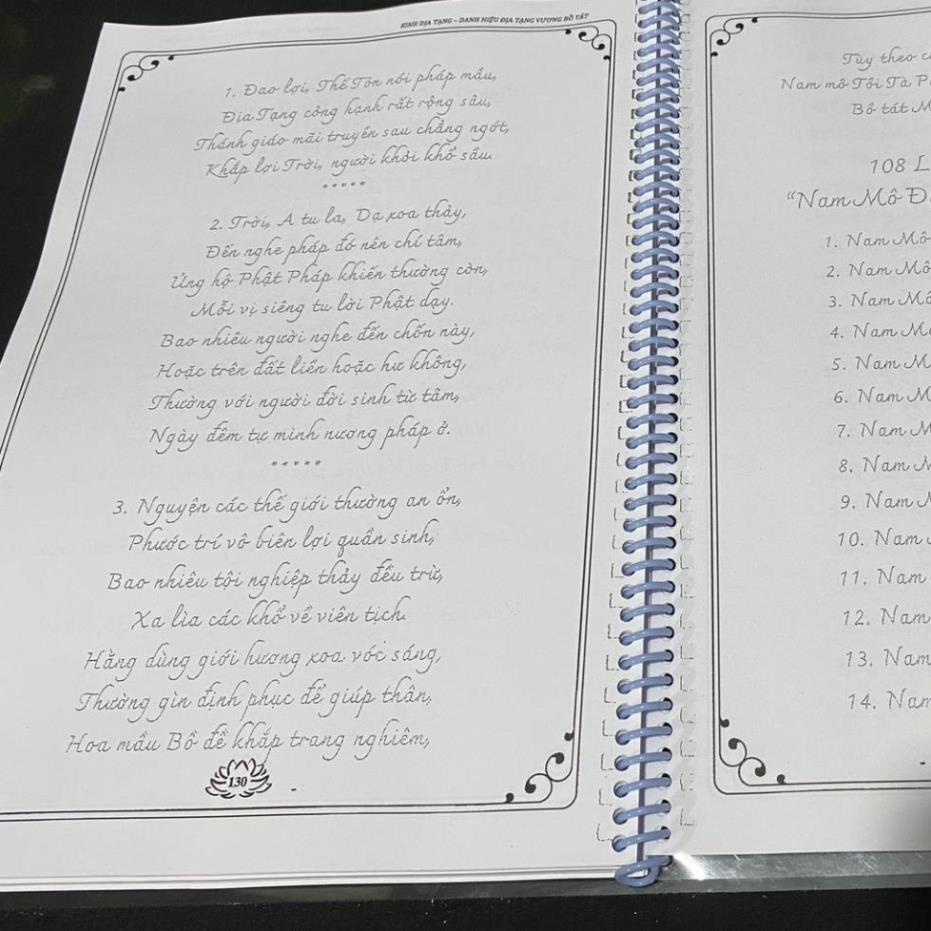 KINH ĐỊA TẠNG – DANH HIỆU ĐỊA TẠNG VƯƠNG BỒ TÁT
1. Đao lợi, Thế Tôn nói pháp mầu,
Địa Tạng công hạnh rất rộng sâu,
Thánh giáo mãi truyền sau chẳng ngớt,
Khắp lợi Trời, người khỏi khổ sầu.
*****
2. Trời, A tu la, Dạ xoa thảy,
Đến nghe pháp đó nên chí tâm,
Ủng hộ Phật Pháp khiến thường còn,
Mỗi vị siêng tu lời Phật dạy.
Bao nhiêu người nghe đến chốn này,
Hoặc trên đất liền hoặc hư không,
Thường với người đời sinh từ tâm,
Ngày đêm tự mình nương pháp ở.
*****
3. Nguyện các thế giới thường an ổn,
Phước trí vô biên lợi quần sinh,
Bao nhiêu tội nghiệp thảy đều trừ,
Xa lìa các khổ về viên tịch.
Hằng dùng giới hương xoa vóc sáng,
Thường gìn định phục để giúp thân,
Hoa mầu Bồ đề khắp trang nghiêm,
130
Tùy theo
Nam mô Tôi Tà
Bồ tát
108
"Nam Mô
1. Nam Mô
2. Nam Mô
3. Nam Mô
4. Nam
5. Nam
6. Nam
7. Nam
8. Nam
9. Nam
10. Nam
11. Nam
12. Nam
13. Nam
14. Nam